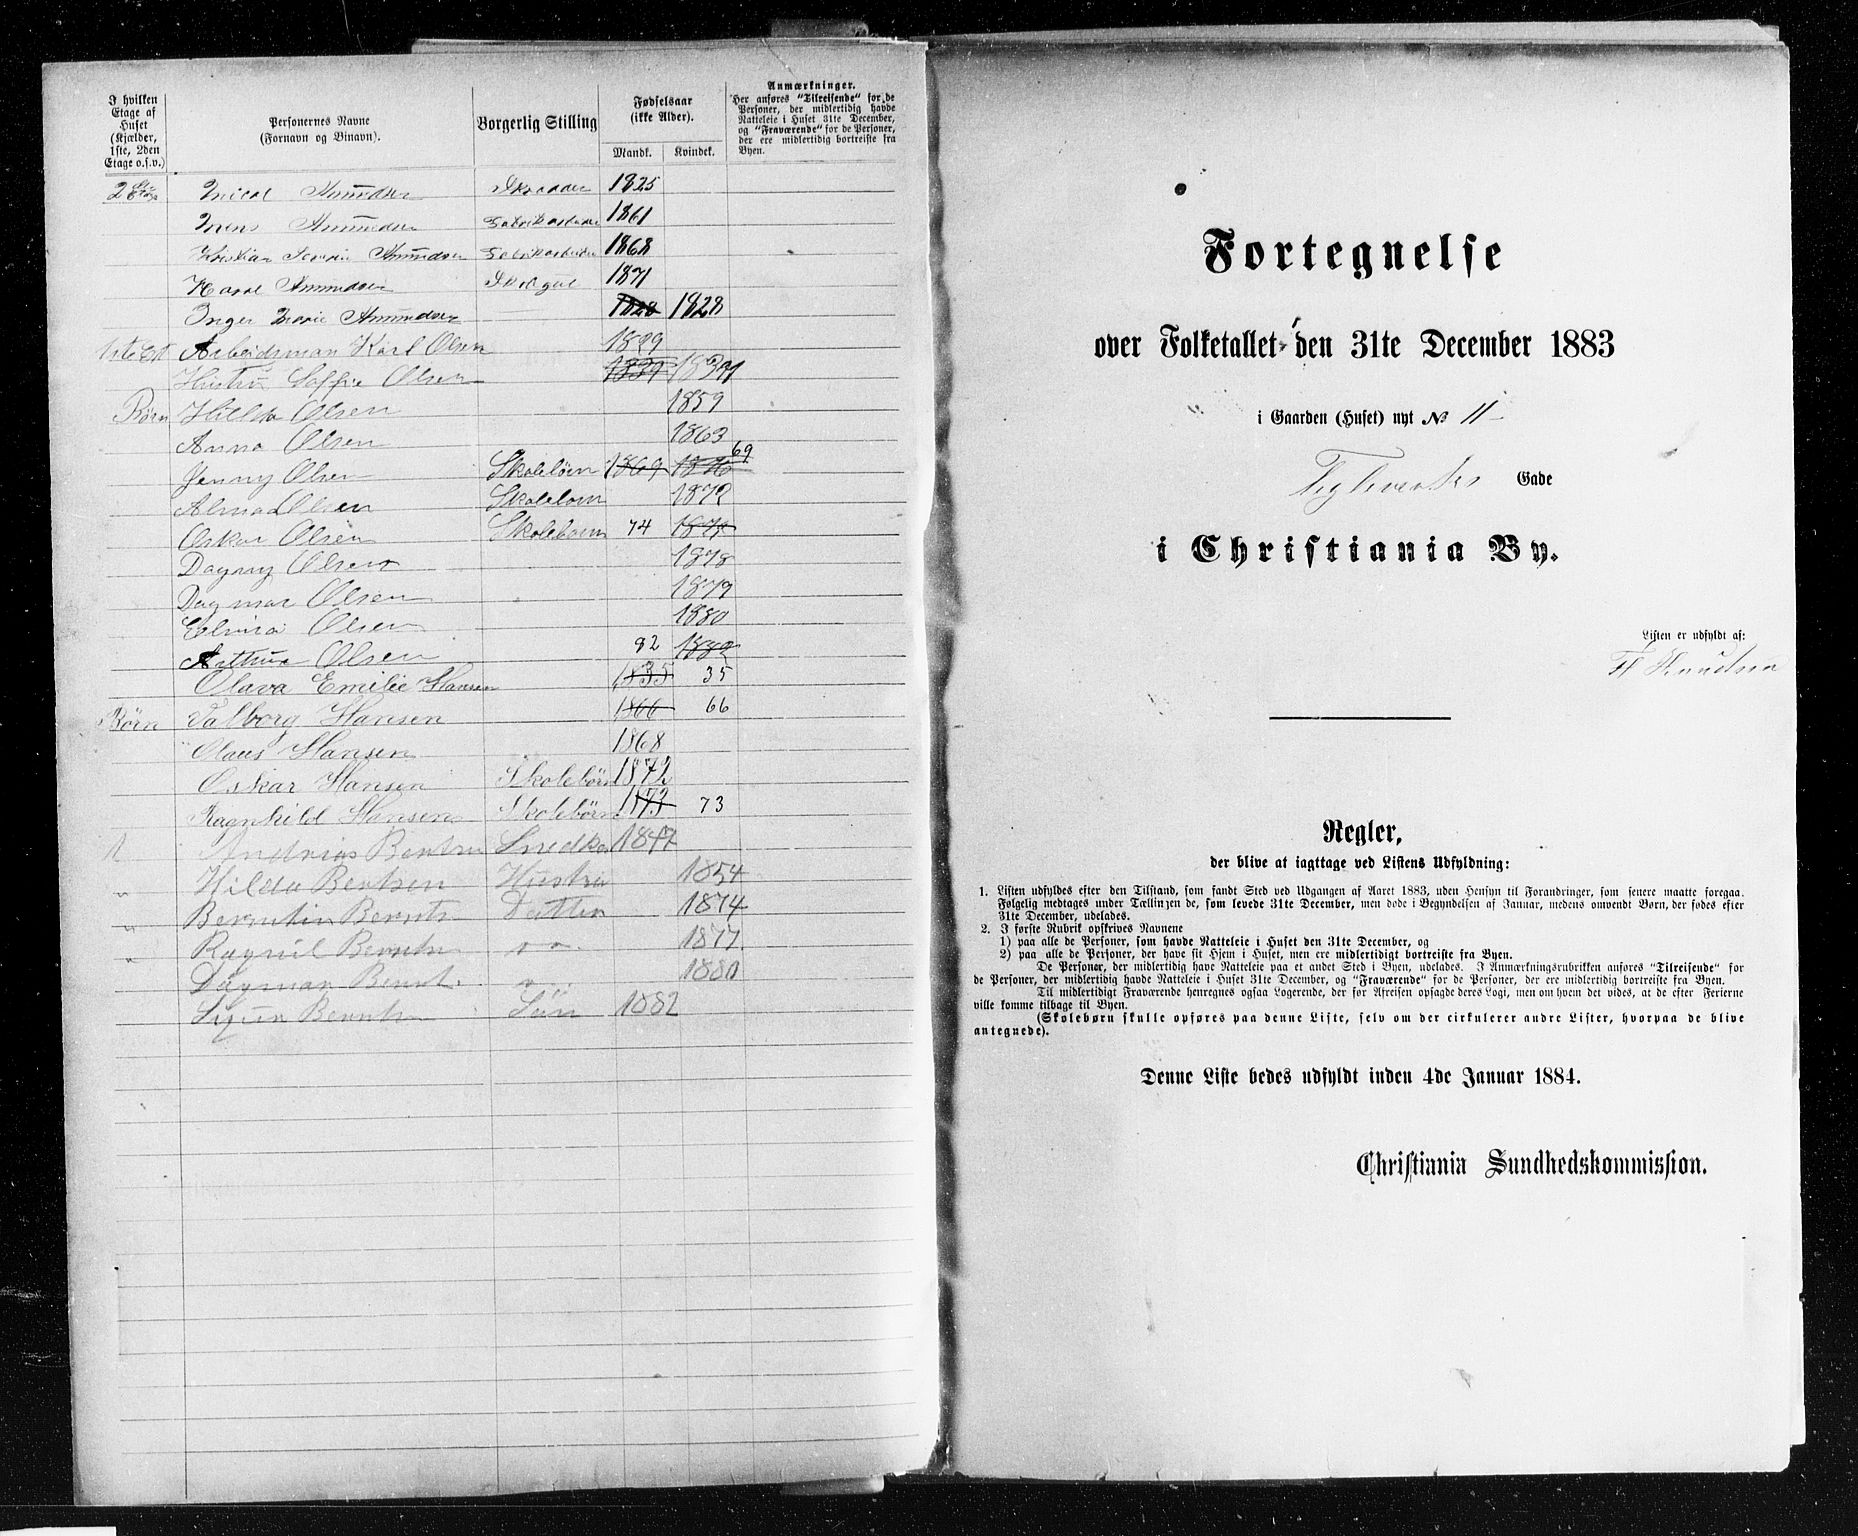 I hvilken
Etage af
Huset
(Kjælder,
1ste, 2den
Etage o.s.v.)
Personernes Navne
(Fornavn og Binavn).
Borgerlig Stilling
Fødselsaar
(ikke Alder).
Mandk. Kvindek.
Anmærkninger.
Her anføres "Tilreisende" for de
Personer, der midlertidig havde
Natteleie i Huset 31te December,
og "Fraværende" for de Personer,
der ere midlertidig bortreiste fra
Byen.
2 Etage Amundsen Skrædder 1825
Amundsen Fabrikarbeider 1861
Kristian Amundsen Fabrikarbeider 1868
Amundsen 1871
Inger Marie Amundsen 1828 1828
1ste Et Arbeidsman Karl Olsen 1829
Hustru Soffie Olsen 1839 1839
Børn Hilda Olsen 1859
Anna Olsen 1863
Jenny Olsen Skolebørn 1869 69
Alma Olsen Skoleborn 1872
Oskar Olsen Skoleboen 74 1874
Dagny Olsen 1878
Dagmar Olsen 1879
Elvina Olsen 1880
Arthur Olsen 82 1882
Olava Emilie Hansen 1835 35
Børn Valborg Hansen 1866 66
" Olaus Hansen 1868
Oskar Hansen Skolebørn 1872
Ragnhild Hansen Skolebørn 1873 73
1 Andrias Bentsen Snedker 1847
" Hilda Bentsen Hustru 1854
" Berntin Bernts Datter 1874
" Ragnil Berntsn 1877
Dagmar Bernt. 1880
Berntsn Sön 1882
Fortegnelse
over Folketallet den 31te December 1883
i Gaarden (Huset) nyt № 11
Teglverks Gade
i Christiania By.
Listen er udfyldt af:
Knudsen
Regler,
der blive at iagttage ved Listens Udfyldning:
1. Listen udfyldes efter den Tilstand, som fandt Sted ved Udgangen af Aaret 1883, uden Hensyn til Forandringer, som senere maatte foregaa.
Følgelig medtages under Tællingen de, som levede 31te December, men døde i Begyndelsen af Januar, medens omvendt Børn, der fødes efter
31te December, udelades.
2. I første Rubrik opskrives Navnene
1) paa alle de Personer, som havde Natteleie i Huset den 31te December, og
2) paa alle de Personer, der have sit Hjem i Huset, men ere midlertidigt bortreiste fra Byen.
De Personer, der midlertidig have Natteleie paa et andet Sted i Byen, udelades. I Anmærkningsrubrikken anføres "Tilreisende" for
de Personer, der midlertidig havde Natteleie i Huset 31te December, og "Fraværende" for de Personer, der ere midlertidig bortreiste fra Byen.
Til midlertidigt Fraværende henregnes ogsaa Logerende, der før Afreisen opsagde deres Logi, men om hvem det vides, at de efter Ferierne
ville komme tilbage til Byen.
(Skolebørn skulle opføres paa denne Liste, selv om der cirkulerer andre Lister, hvorpaa de blive
antegnede).
Denne Liste bedes udfyldt inden 4de Januar 1884.
Christiania Sundhedskommission.